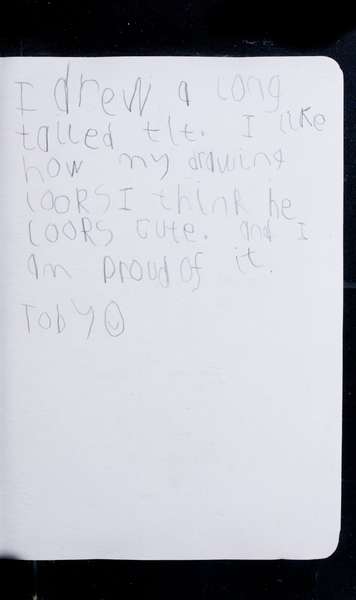 I drew a long
talled tit. I like
how my drawing
looks I think he
looks cute. and I
am proud of it.
Toby